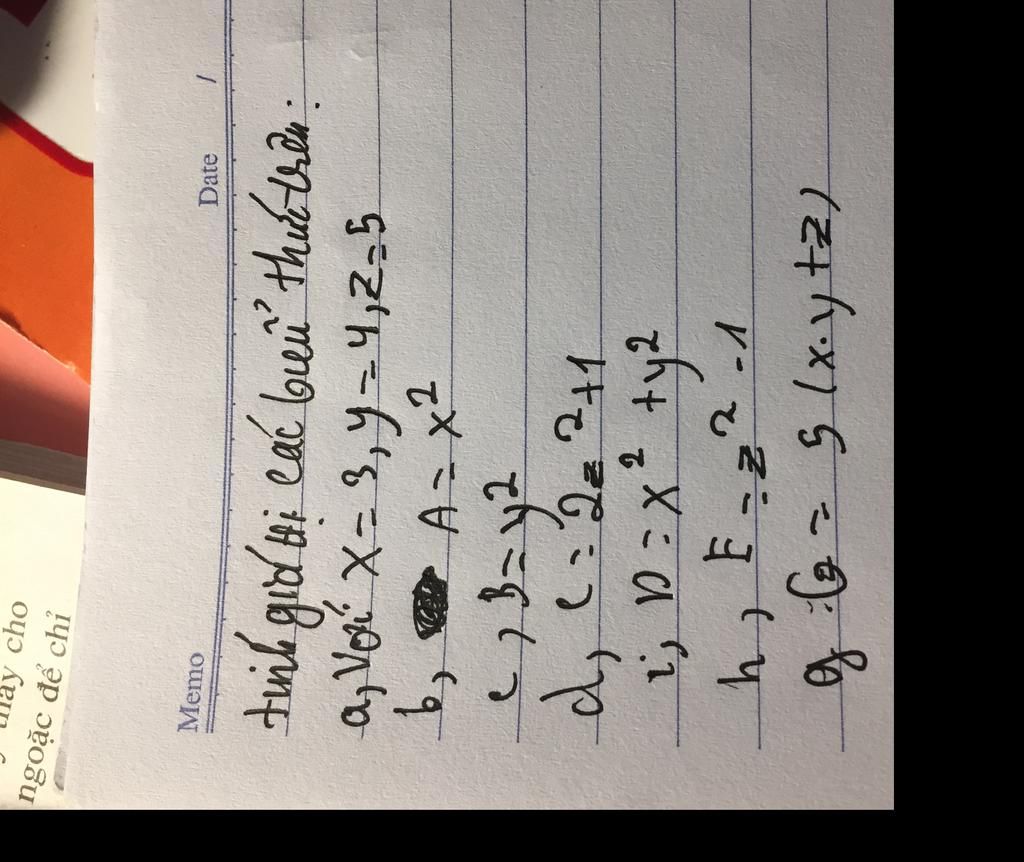 y thay cho
ngoặc để chỉ
Memo
Date /
tính giá tri các biểu thức trên:
a, Với x = 3, y = 4, z = 5
b, A = x²
c, B = y²
d, C = 2z² + 1
i, D = x² + y²
h, F = z² - 1
g: G = 5 (x.y + z)